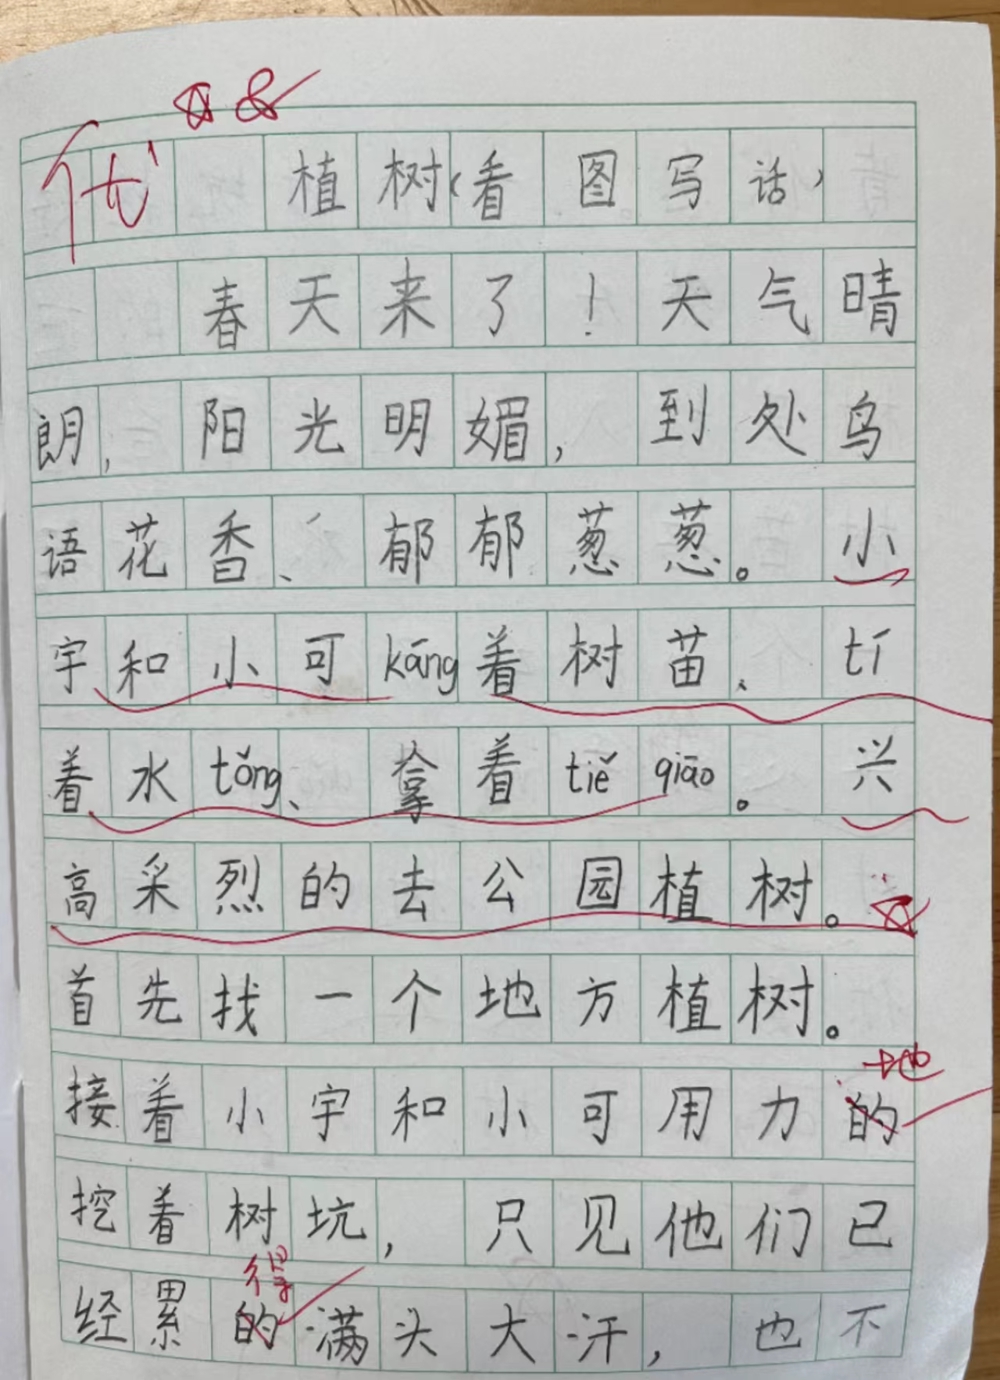 优
植树(看图写话)
春天来了!天气晴
朗,阳光明媚,到处鸟
语花香、郁郁葱葱。小
宇和小可kāng着树苗、tí
着水tǒng、拿着tiě qiāo。兴
高采烈的去公园植树。
首先找一个地方植树。
地
接着小宇和小可用力的
挖着树坑,只见他们已
得
经累的满头大汗,也不